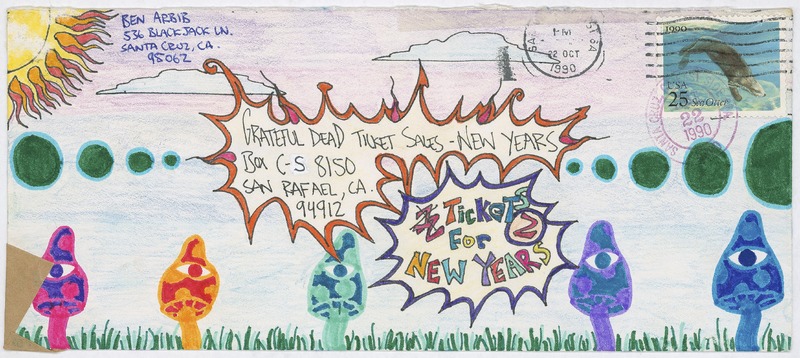 BEN ARBIB
536 BLACKJACK LN.
SANTA CRUZ, CA.
95062
PM
22 OCT
1990
1990
USA
25 Sea Otter
SANTA CRUZ
22
1990
GRATEFUL DEAD TICKET SALES - NEW YEARS
BOX C-S 8150
SAN RAFAEL, CA.
94912
TICKETS
FOR 2
NEW YEARS